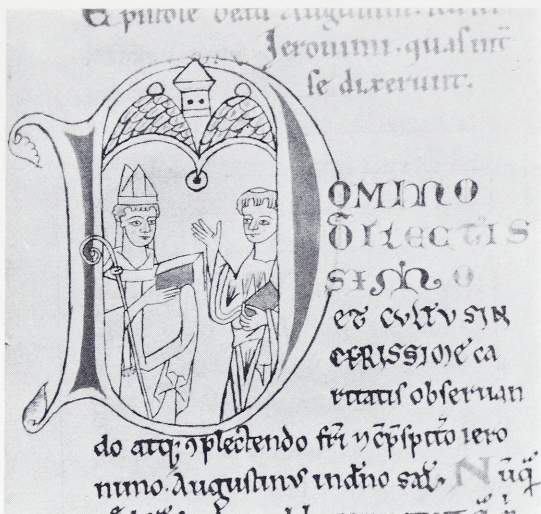 Epistole beati Augustini
Ieronimi · quas int̄
se dixerunt.
DOMINO
DILECTIS
SIMO
ET CVLTV SIN
CERISSIME ca
ritatis obseruan
do atq; ꝯplectendo fr̄i ⁊ cp̄sp̄ito iero
nimo · Augustinus in dn̄o sal̄ · Nūq̄